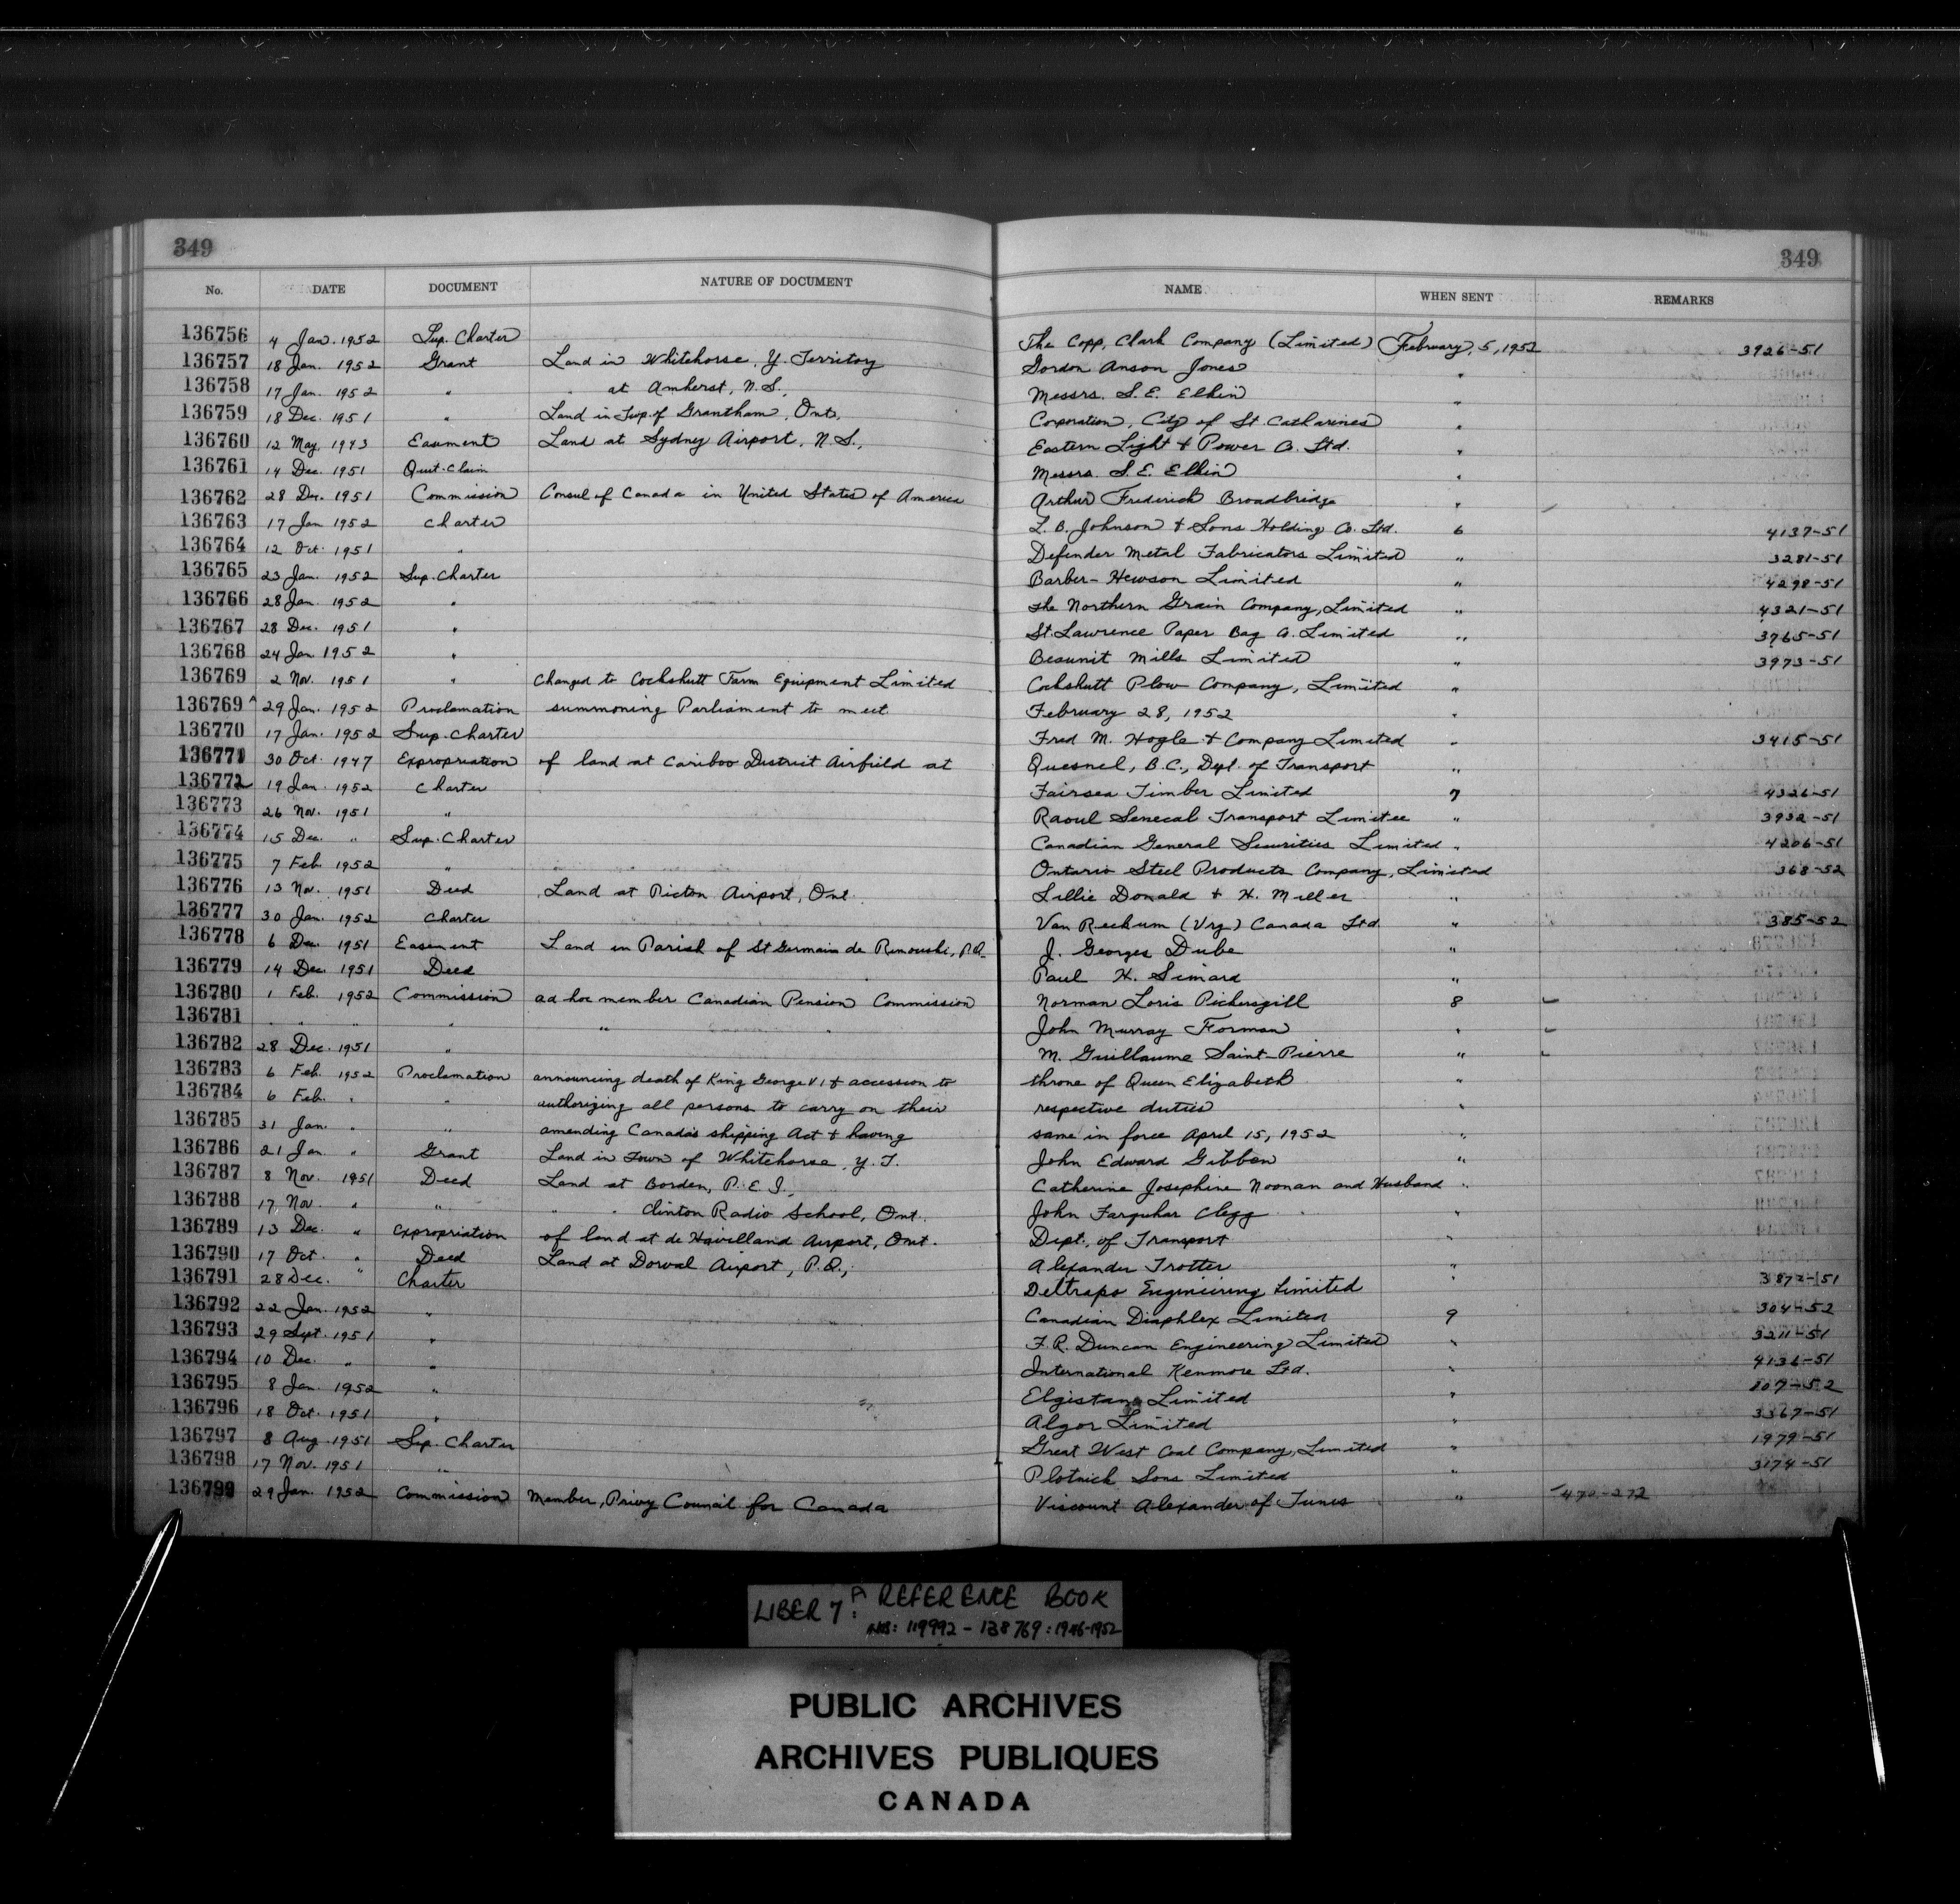 349 349
No. DATE DOCUMENT NATURE OF DOCUMENT NAME WHEN SENT REMARKS
136756 4 Jan. 1952 Sup. Charter The Copp, Clark Company (Limited) February, 5, 1952 3926-51
136757 18 Jan. 1952 Grant Land in Whitehorse, Y. Territory Gordon Anson Jones "
136758 17 Jan. 1952 " " at Amherst, N.S., Messrs. S. E. Elkin "
136759 18 Dec. 1951 " Land in Twp. of Grantham, Ont. Corporation, City of St Catharines "
136760 12 May, 1943 Easement Land at Sydney Airport, N.S., Eastern Light & Power Co. Ltd. "
136761 14 Dec. 1951 Quit-Claim Messrs. S. E. Elkin "
136762 28 Dec. 1951 Commission Consul of Canada in United States of America Arthur Frederick Broadbridge "
136763 17 Jan 1952 Charter L. B. Johnson & Sons Holding Co. Ltd. 6 4137-51
136764 12 Oct. 1951 " Defender Metal Fabricators Limited " 3281-51
136765 23 Jan. 1952 Sup. Charter Barber-Hewson Limited " 4298-51
136766 28 Jan. 1952 " The Northern Grain Company, Limited " 4321-51
136767 28 Dec. 1951 " St. Lawrence Paper Bag Co. Limited " 3765-51
136768 24 Jan. 1952 " Beaunit Mills Limited " 3973-51
136769 2 Nov. 1951 " Changed to Cockshutt Farm Equipment Limited Cockshutt Plow Company, Limited "
136769A 29 Jan. 1952 Proclamation summoning Parliament to meet February 28, 1952 "
136770 17 Jan. 1952 Sup. Charter Fred M. Hogle & Company Limited " 3415-51
136771 30 Oct. 1947 Expropriation of land at Cariboo District Airfield at Quesnel, B.C., Dept. of Transport "
136772 19 Jan. 1952 Charter Fairsea Timber Limited 7 4326-51
136773 26 Nov. 1951 " Raoul Senecal Transport Limitee " 3932-51
136774 15 Dec. " Sup. Charter Canadian General Securities Limited " 4206-51
136775 7 Feb. 1952 " Ontario Steel Products Company, Limited 368-52
136776 13 Nov. 1951 Deed Land at Picton Airport, Ont. Lillie Donald & H. Miller "
136777 30 Jan. 1952 Charter Van Reekum (Vry) Canada Ltd. " 385-52
136778 6 Dec. 1951 Easement Land in Parish of St Germain de Rimouski, P.Q. J. Georges Dube "
136779 14 Dec. 1951 Deed Paul H. Simard "
136780 1 Feb. 1952 Commission ad hoc member Canadian Pension Commission Norman Loris Pickersgill 8
136781 " " " " " " John Murray Forman "
136782 28 Dec. 1951 " M. Guillaume Saint-Pierre "
136783 6 Feb. 1952 Proclamation announcing death of King George VI & accession to throne of Queen Elizabeth "
136784 6 Feb. " " authorizing all persons to carry on their respective duties "
136785 31 Jan. " " amending Canada's shipping Act & having same in force April 15, 1952 "
136786 21 Jan " Grant Land in Town of Whitehorse, Y.T. John Edward Gibben "
136787 8 Nov. 1951 Deed Land at Borden, P.E.I., Catherine Josephine Noonan and Husband "
136788 17 Nov. " " " " Clinton Radio School, Ont. John Farquhar Clegg "
136789 13 Dec. " Expropriation of land at de Havilland Airport, Ont. Dept., of Transport "
136790 17 Oct. " Deed Land at Dorval Airport, P.Q., Alexander Trotter "
136791 28 Dec. " Charter Deltrapo Engineering Limited " 3872-51
136792 22 Jan. 1952 " Canadian Diaphlex Limited 9 304-52
136793 29 Sept. 1951 " F. R. Duncan Engineering Limited " 3211-51
136794 10 Dec. " " International Kenmore Ltd. " 4136-51
136795 8 Jan. 1952 " Elgistan Limited " 107-52
136796 18 Oct. 1951 " Algor Limited " 3367-51
136797 8 Aug. 1951 Sup. Charter Great West Coal Company, Limited " 1979-51
136798 17 Nov. 1951 " Plotnick Sons Limited " 3174-51
136799 29 Jan. 1952 Commission Member, Privy Council for Canada Viscount Alexander of Tunis " 472-272
LIBER 7A: REFERENCE BOOK
NOS: 119992 - 138769: 1946-1952
PUBLIC ARCHIVES
ARCHIVES PUBLIQUES
CANADA